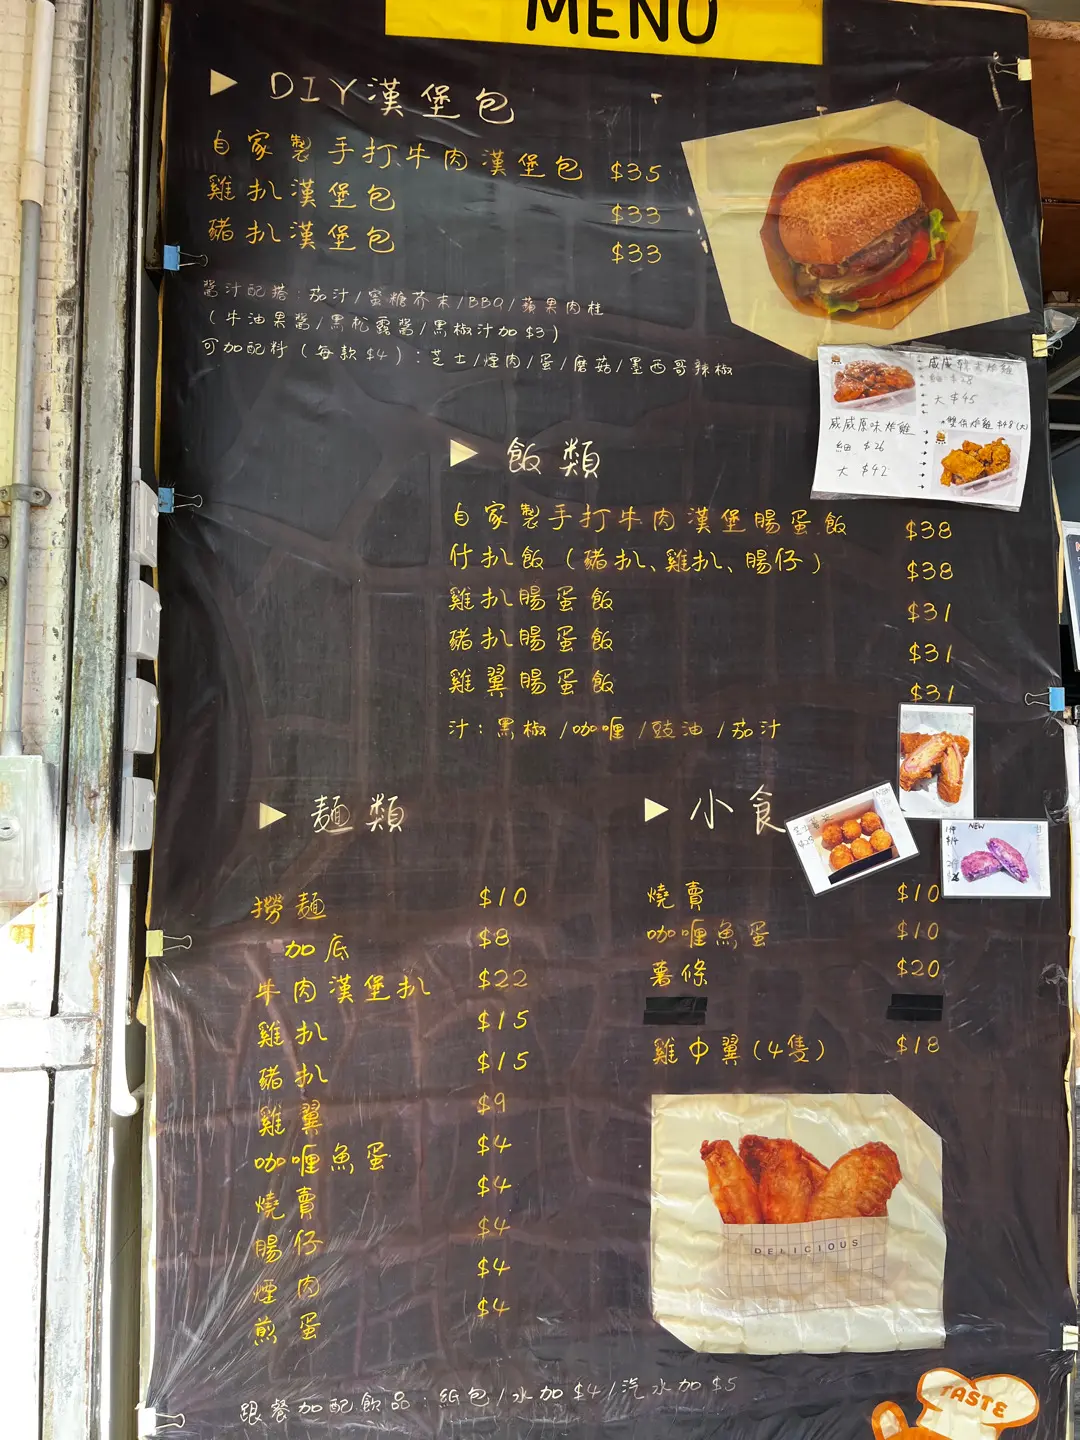 MENU
DIY漢堡包
自家製手打牛肉漢堡包 $35
雞扒漢堡包 $33
豬扒漢堡包 $33
醬汁配搭：茄汁/蜜糖芥末/BBQ/蘋果肉桂
（牛油果醬/黑松露醬/黑椒汁加$3）
可加配料（每款$4）：芝士/煙肉/蛋/磨菇/墨西哥辣椒
大$45
威威原味炸雞
細 $26
大 $42
雙併炸雞 $48(大)
飯類
自家製手打牛肉漢堡腸蛋飯 $38
什扒飯（豬扒、雞扒、腸仔） $38
雞扒腸蛋飯 $31
豬扒腸蛋飯 $31
雞翼腸蛋飯 $31
汁：黑椒/咖喱/豉油/茄汁
麵類
撈麵 $10
加底 $8
牛肉漢堡扒 $22
雞扒 $15
豬扒 $15
雞翼 $9
咖喱魚蛋 $4
燒賣 $4
腸仔 $4
煙肉 $4
煎蛋 $4
小食
NEW
燒賣 $10
咖喱魚蛋 $10
薯條 $20
雞中翼(4隻) $18
DELICIOUS
跟餐加配飲品：紙包/水加$4/汽水加$5
TASTE